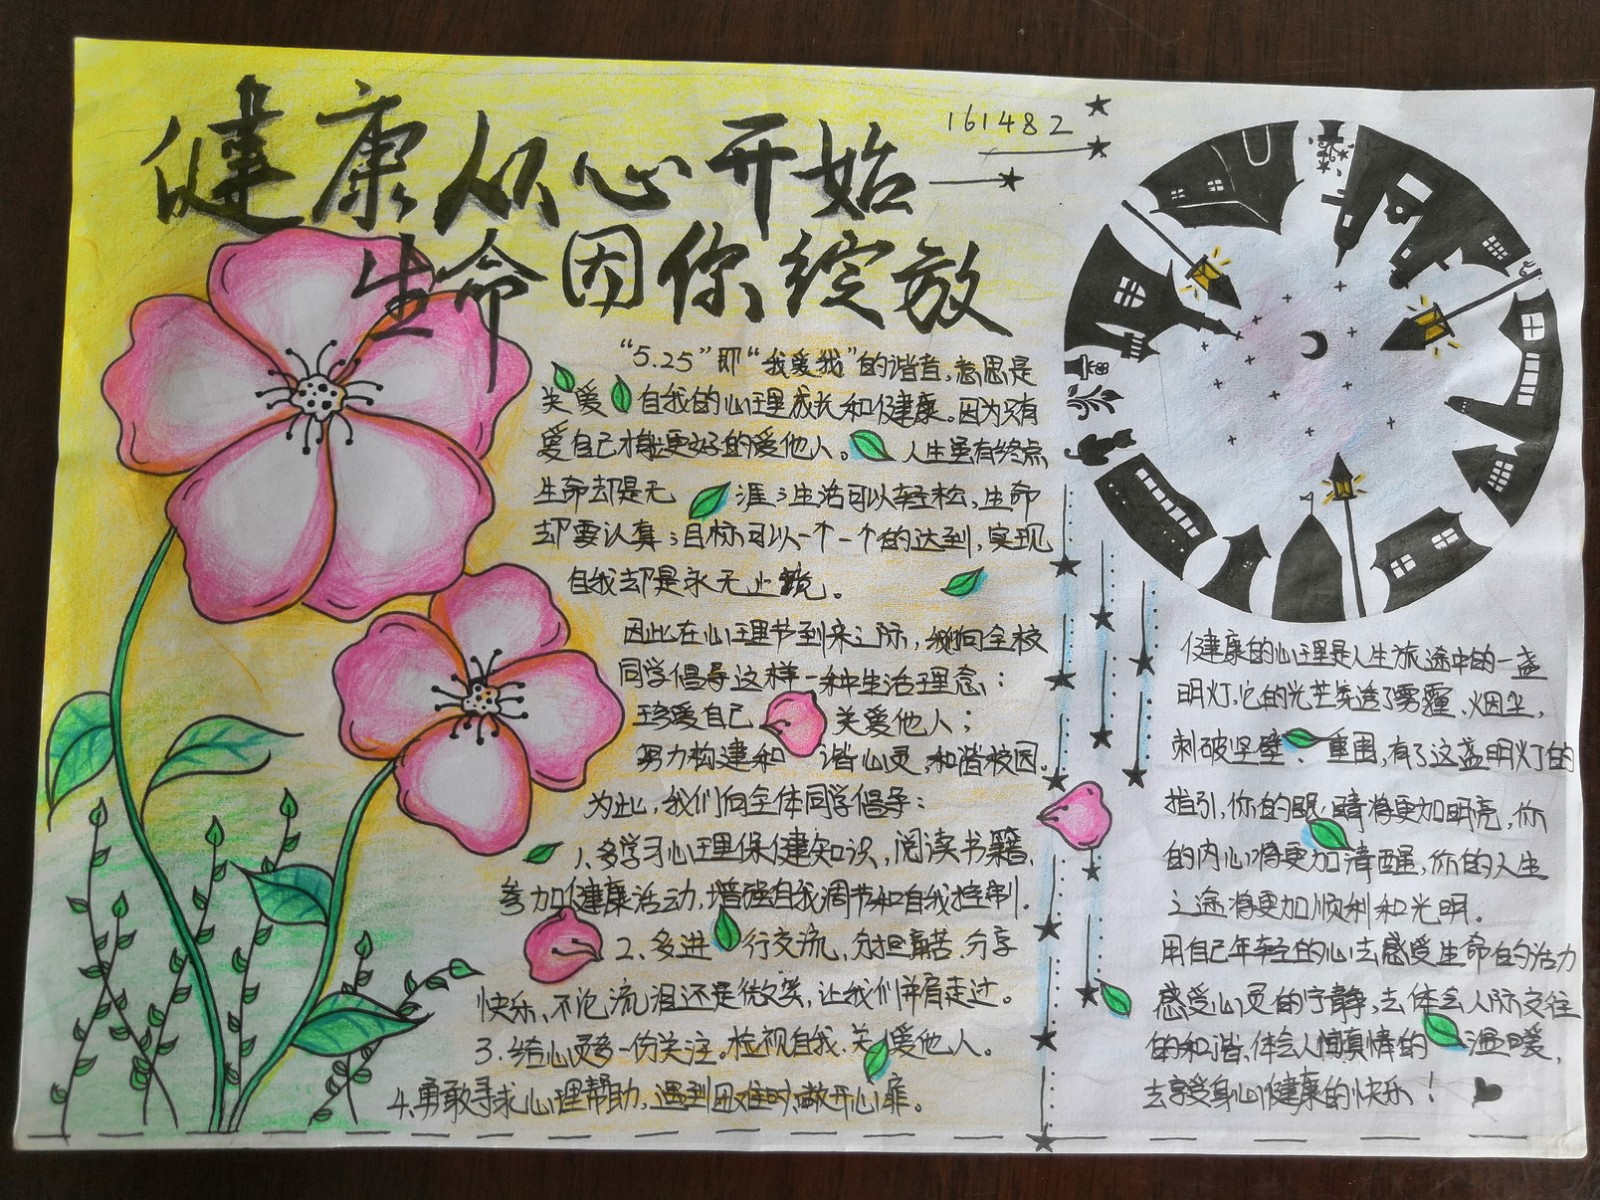 健康从心开始
生命因你绽放
161482
“5.25”即“我爱我”的谐音,意思是
关爱自我的心理成长和健康。因为只有
爱自己才能更好的爱他人。人生虽有终点
生命却是无涯;生活可以轻松,生命
却要认真;目标可以一个一个的达到,实现
自我却是永无止境。
因此在心理节到来之际,我们向全校
同学倡导这样一种生活理念:
珍爱自己 关爱他人;
努力构建和谐心灵,和谐校园。
为此,我们向全体同学倡导:
1、多学习心理保健知识,阅读书籍、
参加健康活动,增强自我调节和自我控制。
2、多进行交流,分担痛苦、分享
快乐、不论流泪还是微笑,让我们并肩走过。
3、给心灵多一份关注。检视自我、关爱他人。
4、勇敢寻求心理帮助,遇到困难时,敞开心扉。
健康的心理是人生旅途中的一盏
明灯,它的光芒穿透了雾霾、烟尘,
刺破坚壁、重围,有了这盏明灯的
指引,你的眼睛将更加明亮,你
的内心将更加清醒,你的人生
之途将更加顺利和光明。
用自己年轻的心去感受生命的活力
感受心灵的宁静,去体会人际交往
的和谐、体会人间真情的温暖,
去享受身心健康的快乐!